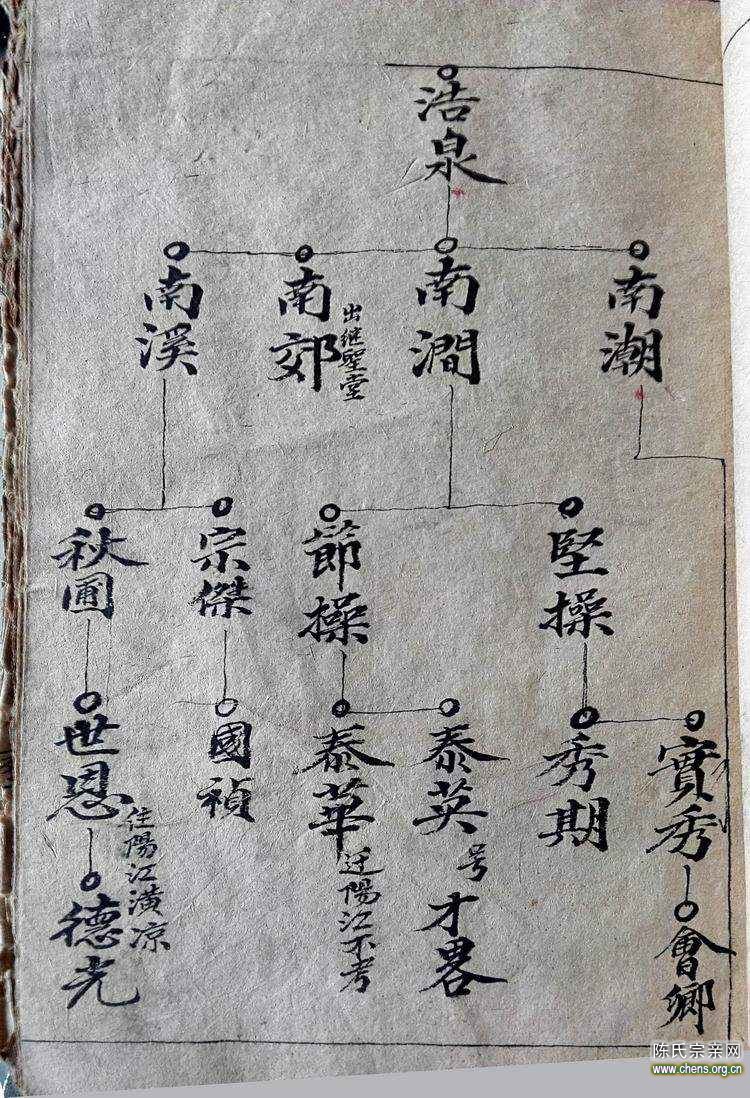 浩泉
南潮
南澗
南郊
出继聖堂
南溪
堅操
節操
宗傑
秋圃
實秀
秀期
泰英
号
才畧
泰華
迁陽江不考
國禎
世恩
住陽江潢凉
會卿
德光
陈氏宗亲网
www.chens.org.cn